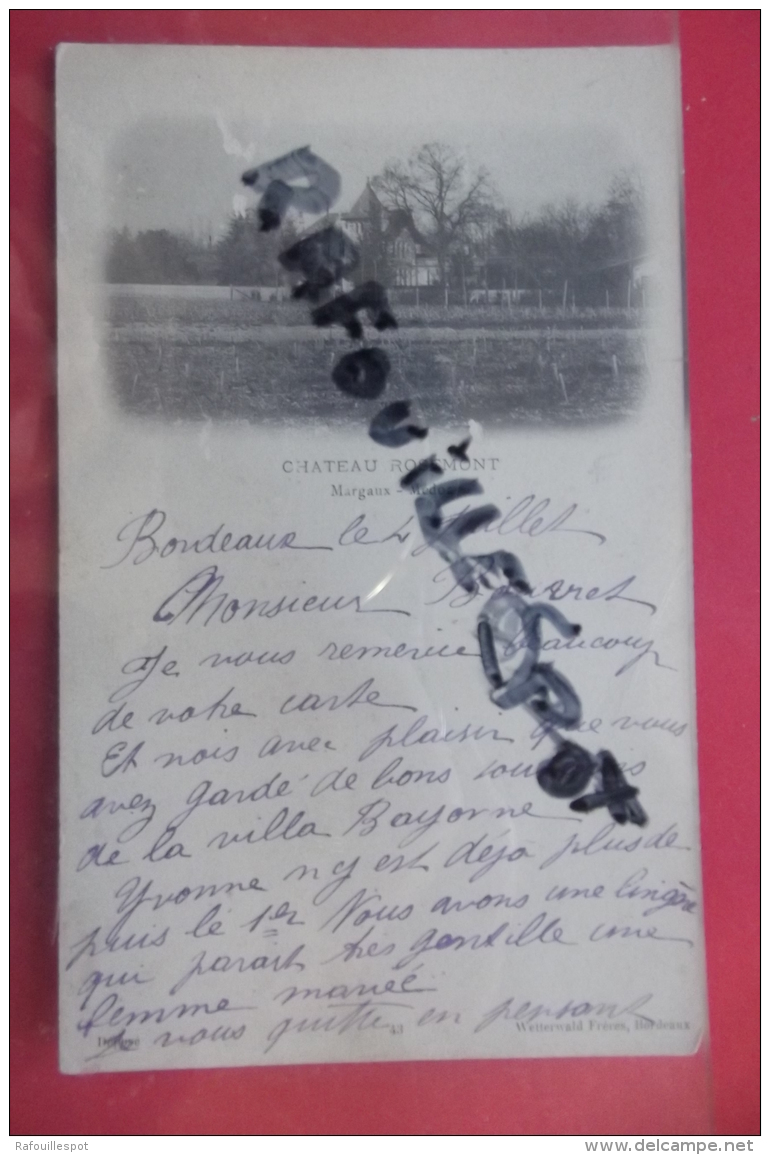 RAFOUILLESPOT
CHATEAU ROSEMONT
Margaux - Médoc
Bordeaux le 4 Juillet
Monsieur
Je vous remercie beaucoup
de votre carte
Et vois avec plaisir que vous
avez gardé de bons souvenirs
de la villa Bayonne
Yvonne n'y est déjà plus de
puis le 1er Nous avons une lingère
qui parait très gentille une
femme mariée
Je vous quitte en pensant
43
Wetterwald Frères, Bordeaux
Rafouillespot
www.delcampe.net